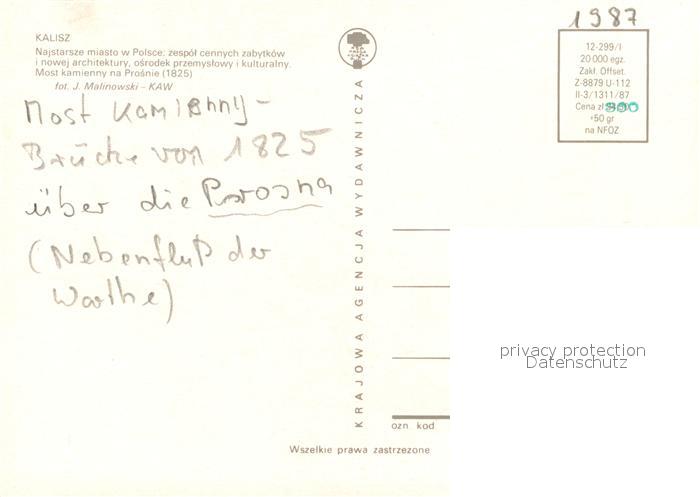 1987
KALISZ
Najstarsze miasto w Polsce: zespół cennych zabytków
i nowej architektury, ośrodek przemysłowy i kulturalny.
Most kamienny na Prośnie (1825)
fot. J. Malinowski – KAW
Most Kamienny –
Brücke von 1825
über die Prosna
(Nebenfluß der
Warthe)
KRAJOWA AGENCJA WYDAWNICZA
12-299/I
20 000 egz.
Zakł. Offset.
Z-8879 U-112
II-3/1311/87
Cena zł
+50 gr
na NFOZ
privacy protection
Datenschutz
ozn kod
Wszelkie prawa zastrzeżone